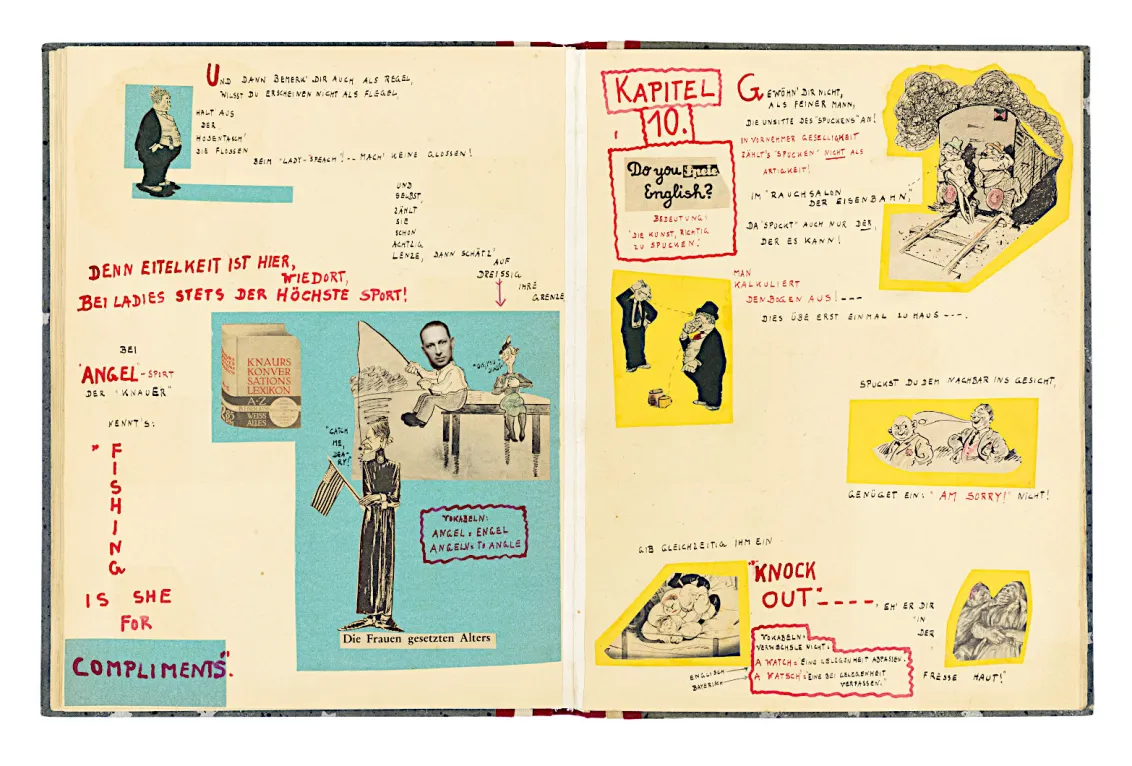 UND DANN BEMERK' DIR AUCH ALS REGEL,
WILLST DU ERSCHEINEN NICHT ALS FLEGEL,
HALT AUS
DER
HOSENTASCH'
DIE FLOSSEN
BEIM "LADY-SPEACH"!-- MACH' KEINE GLOSSEN!
UND
SELBST,
ZÄHLT
SIE
SCHON
ACHTZIG
LENZE, DANN SCHÄTZ'
AUF
DREISSIG
IHRE
GRENZE
DENN EITELKEIT IST HIER,
WIEDORT,
BEI LADIES STETS DER HÖCHSTE SPORT!
BEI
"ANGEL"-SPIRT
DER "KNAUER"
KENNT'S:
"FISHING
IS SHE
FOR
COMPLIMENTS".
KNAURS
KONVER
SATIONS
LEXIKON
A-Z
WEISS
ALLES
"CATCH
ME,
DEA-
RY!"
VOKABELN:
ANGEL = ENGEL
ANGELN = TO ANGLE
Die Frauen gesetzten Alters
KAPITEL
10.
Do you Speie
English?
BEDEUTUNG:
"DIE KUNST, RICHTIG
ZU SPUCKEN!"
GEWÖHN' DIR NICHT,
ALS FEINER MANN,
DIE UNSITTE DES "SPUCKENS" AN!
IN VORNEHMER GESELLIGKEIT
ZÄHLT'S "SPUCKEN" NICHT ALS
ARTIGKEIT!
IM "RAUCHSALON
DER EISENBAHN",
DA "SPUCKT" AUCH NUR DER,
DER ES KANN!
MAN
KALKULIERT
DEN BOGEN AUS!---
DIES ÜBE ERST EINMAL ZU HAUS---.
SPUCKST DU DEM NACHBAR INS GESICHT,
GENÜGET EIN: "AM SORRY!" NICHT!
GIB GLEICHZEITIG IHM EIN
"KNOCK
OUT"----,
EH' ER DIR
"IN
DER
FRESSE HAUT!"
VOKABELN:
VERWECHSLE NICHT:
A WATCH = EINE GELEGENHEIT ABPASSEN.
A WATSCH' = "EINE BEI GELEGENHEIT
VERPASSEN."
ENGLISCH
BAYERISCH